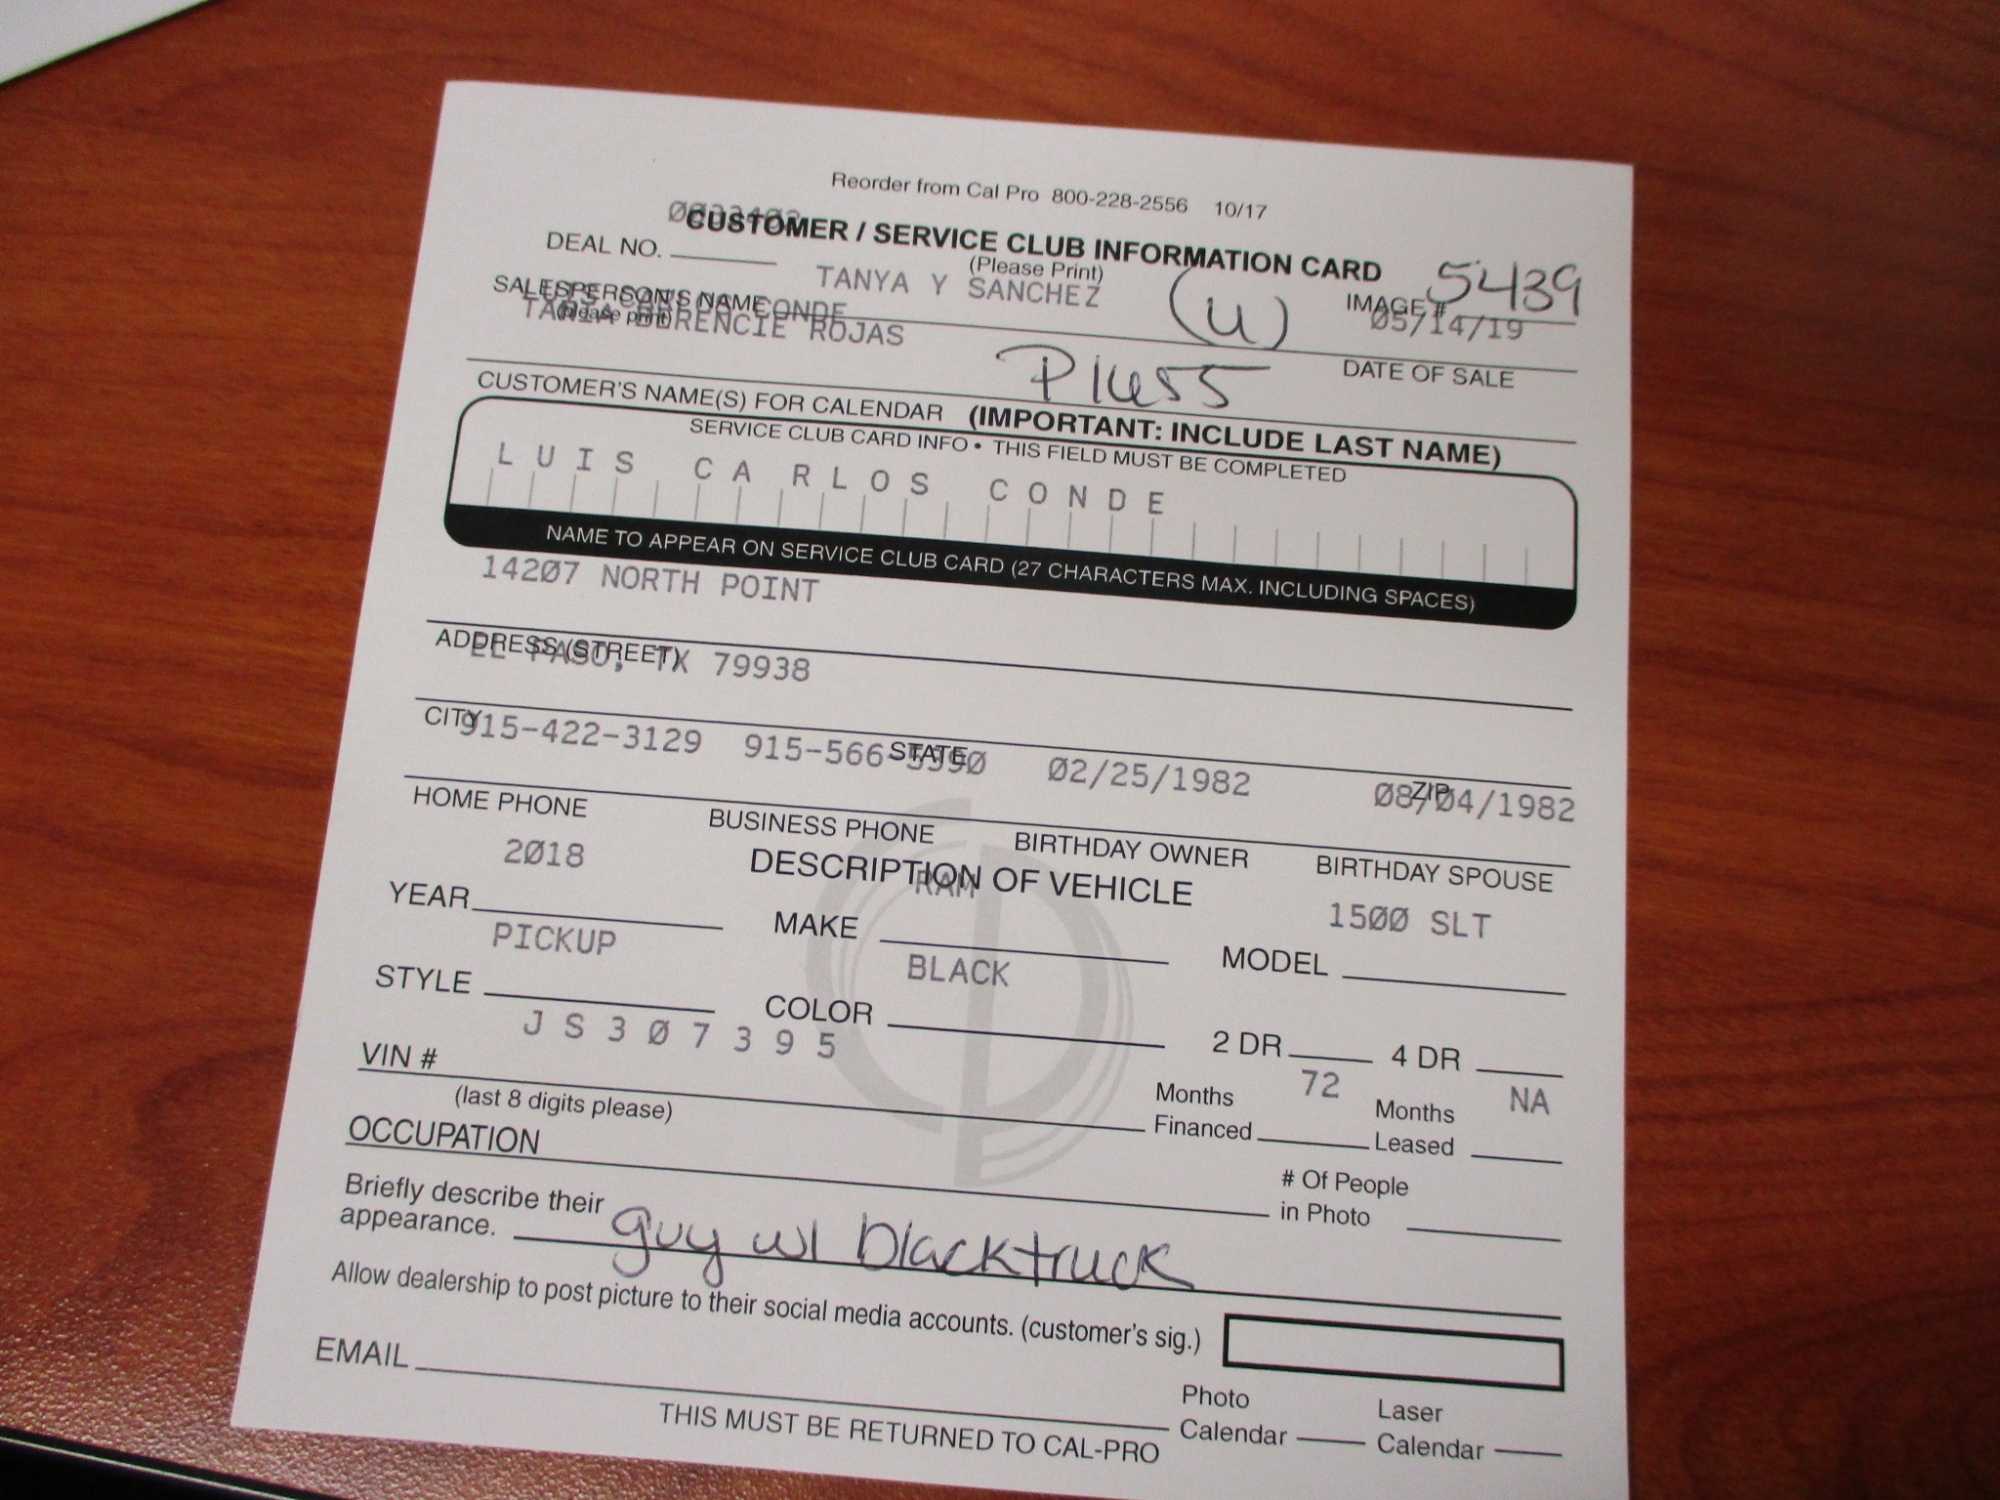 Reorder from Cal Pro 800-228-2556 10/17
CUSTOMER / SERVICE CLUB INFORMATION CARD
DEAL NO.
(Please Print)
TANYA Y SANCHEZ
(u)
IMAGE # 5439
SALESPERSON'S NAME CONDE
(please print)
TANIA BERENCIE ROJAS
05/14/19
DATE OF SALE
CUSTOMER'S NAME(S) FOR CALENDAR (IMPORTANT: INCLUDE LAST NAME)
SERVICE CLUB CARD INFO • THIS FIELD MUST BE COMPLETED
LUIS CARLOS CONDE
NAME TO APPEAR ON SERVICE CLUB CARD (27 CHARACTERS MAX. INCLUDING SPACES)
14207 NORTH POINT
ADDRESS (STREET)
EL PASO, TX 79938
CITY STATE ZIP
915-422-3129 915-566- 02/25/1982 08/04/1982
HOME PHONE BUSINESS PHONE BIRTHDAY OWNER BIRTHDAY SPOUSE
DESCRIPTION OF VEHICLE
YEAR 2018 MAKE RAM MODEL 1500 SLT
STYLE PICKUP COLOR BLACK 2 DR 4 DR
VIN # JS307395
(last 8 digits please)
Months Financed 72 Months Leased NA
OCCUPATION
# Of People in Photo
Briefly describe their
appearance. guy w/ black truck
Allow dealership to post picture to their social media accounts. (customer's sig.)
EMAIL
Photo Calendar Laser Calendar
THIS MUST BE RETURNED TO CAL-PRO